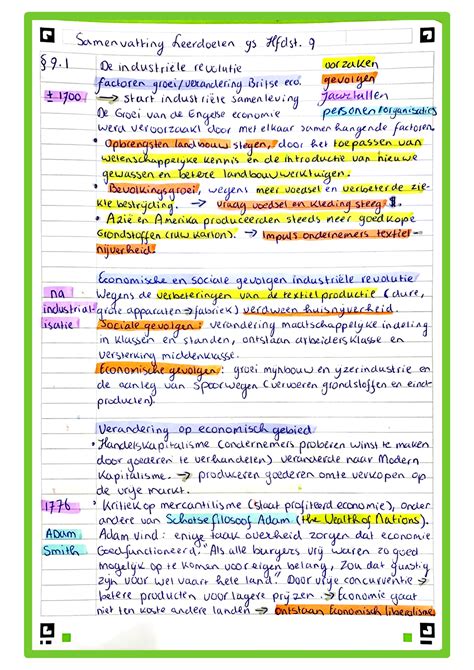 Samenvatting Leerdoelen gs Hfdst. 9
§9.1 De industriële revolutie oorzaken
factoren groei/verandering Britse eco. gevolgen
± 1700 → start industriële samenleving jaartallen
De Groei van de Engelse economie personen/organisaties
werd veroorzaakt door met elkaar samenhangende factoren.
• Opbrengsten landbouw stegen, door het toepassen van
wetenschappelijke kennis en de introductie van nieuwe
gewassen en betere landbouwwerktuigen.
• Bevolkingsgroei, wegens meer voedsel en verbeterde zie-
kte bestrijding. → vraag voedsel en kleding steeg
• Azië en Amerika produceerden steeds meer goedkope
Grondstoffen (ruw katoen). → Impuls ondernemers textiel-
nijverheid.
Economische en sociale gevolgen industriële revolutie
na Wegens de verbeteringen van de textielproductie (dure,
industrial- grote apparaten → fabriek) verdween huisnijverheid.
isatie Sociale gevolgen: verandering maatschappelijke indeling
in klassen en standen, ontstaan arbeidersklasse en
versterking middenklasse.
Economische gevolgen: groei mijnbouw en ijzerindustrie en
de aanleg van spoorwegen (vervoeren grondstoffen en eind-
producten).
Verandering op economisch gebied
• Handelskapitalisme (ondernemers proberen winst te maken
door goederen te verhandelen) veranderde naar Modern
Kapitalisme. → produceren goederen om te verkopen op
de vrije markt.
1776 • Kritiek op mercantilisme (staat profiteerd economie), onder
andere van Schotse filosoof Adam (the Wealth of Nations).
Adam Adam vind: enige taak overheid zorgen dat economie
Smith Goed functioneerd. "Als alle burgers vrij waren zo goed
mogelijk op te komen voor eigen belang, zou dat gunstig
zijn voor wel vaart hele land." Door vrije concurrentie →
betere producten voor lagere prijzen → Economie gaat
niet ten koste andere landen → ontstaan Economisch liberalisme